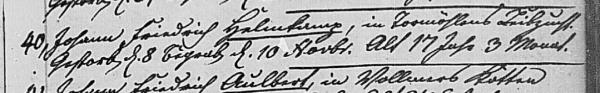 40, Johann Friedrich Helmkamp, in Tormöhlens Leibzucht.
Gestorb. d. 8 Begrab. d. 10 Novbr. Alt 17 Jahr 3 Monat.
Johann Friedrich Aulbert, in Vollmers Kotten